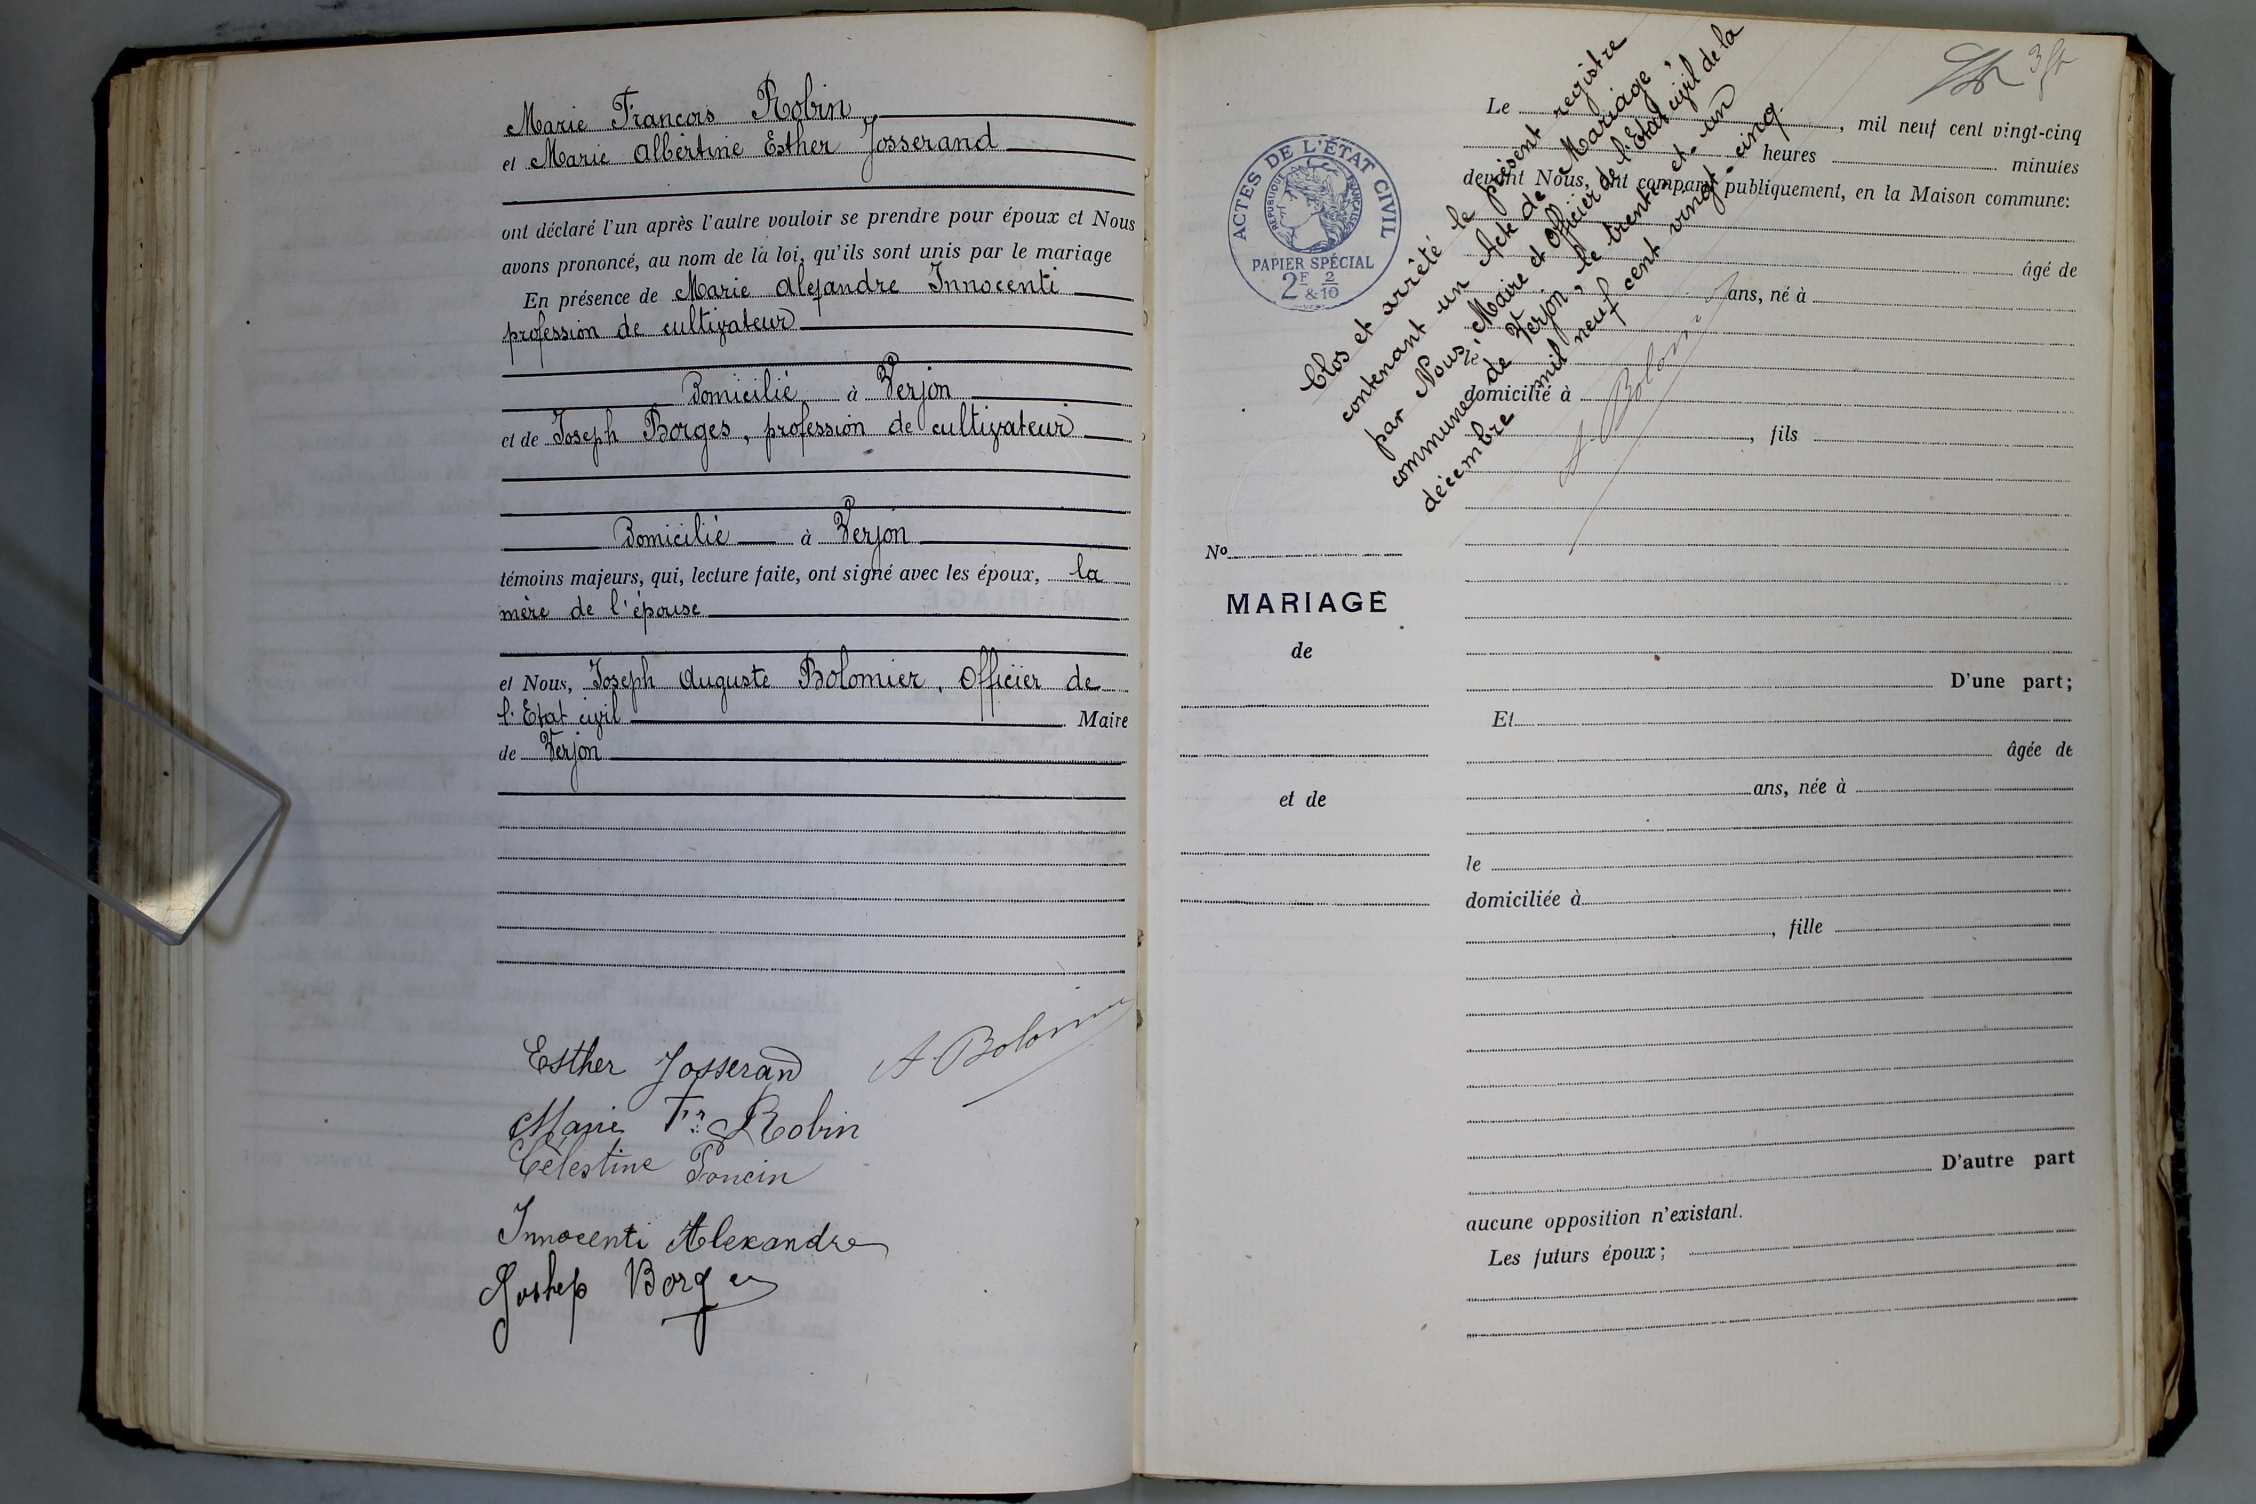 Marie François Robin
et Marie Albertine Esther Josserand
ont déclaré l'un après l'autre vouloir se prendre pour époux et Nous
avons prononcé, au nom de la loi, qu'ils sont unis par le mariage
En présence de Marie Alexandre Innocenti
profession de cultivateur
Domicilié à Verjon
et de Joseph Borges, profession de cultivateur
Domicilié à Verjon
témoins majeurs, qui, lecture faite, ont signé avec les époux, la
mère de l'épouse
et Nous, Joseph Auguste Bolomier, Officier de
l'Etat civil Maire
de Verjon
Esther Josserand
A. Bolomi
Marie Fr Robin
Célestine Poncin
Innocenti Alexandre
Joshep Borges
Clos et arrêté le présent registre
contenant un Acte de Mariage
par Nous, Maire et Officier de l'Etat civil de la
commune de Verjon, le trente-et-un
décembre mil neuf cent vingt-cinq.
A. Bolomi
ACTES DE L'ÉTAT CIVIL
RÉPUBLIQUE FRANÇAISE
PAPIER SPÉCIAL
2F & 2/10
No
MARIAGE
de
et de
Le , mil neuf cent vingt-cinq
heures minutes
devant Nous, ont comparu publiquement, en la Maison commune:
âgé de
ans, né à
le
domicilié à
, fils
D'une part;
Et
âgée de
ans, née à
le
domiciliée à
, fille
D'autre part
aucune opposition n'existant.
Les futurs époux;